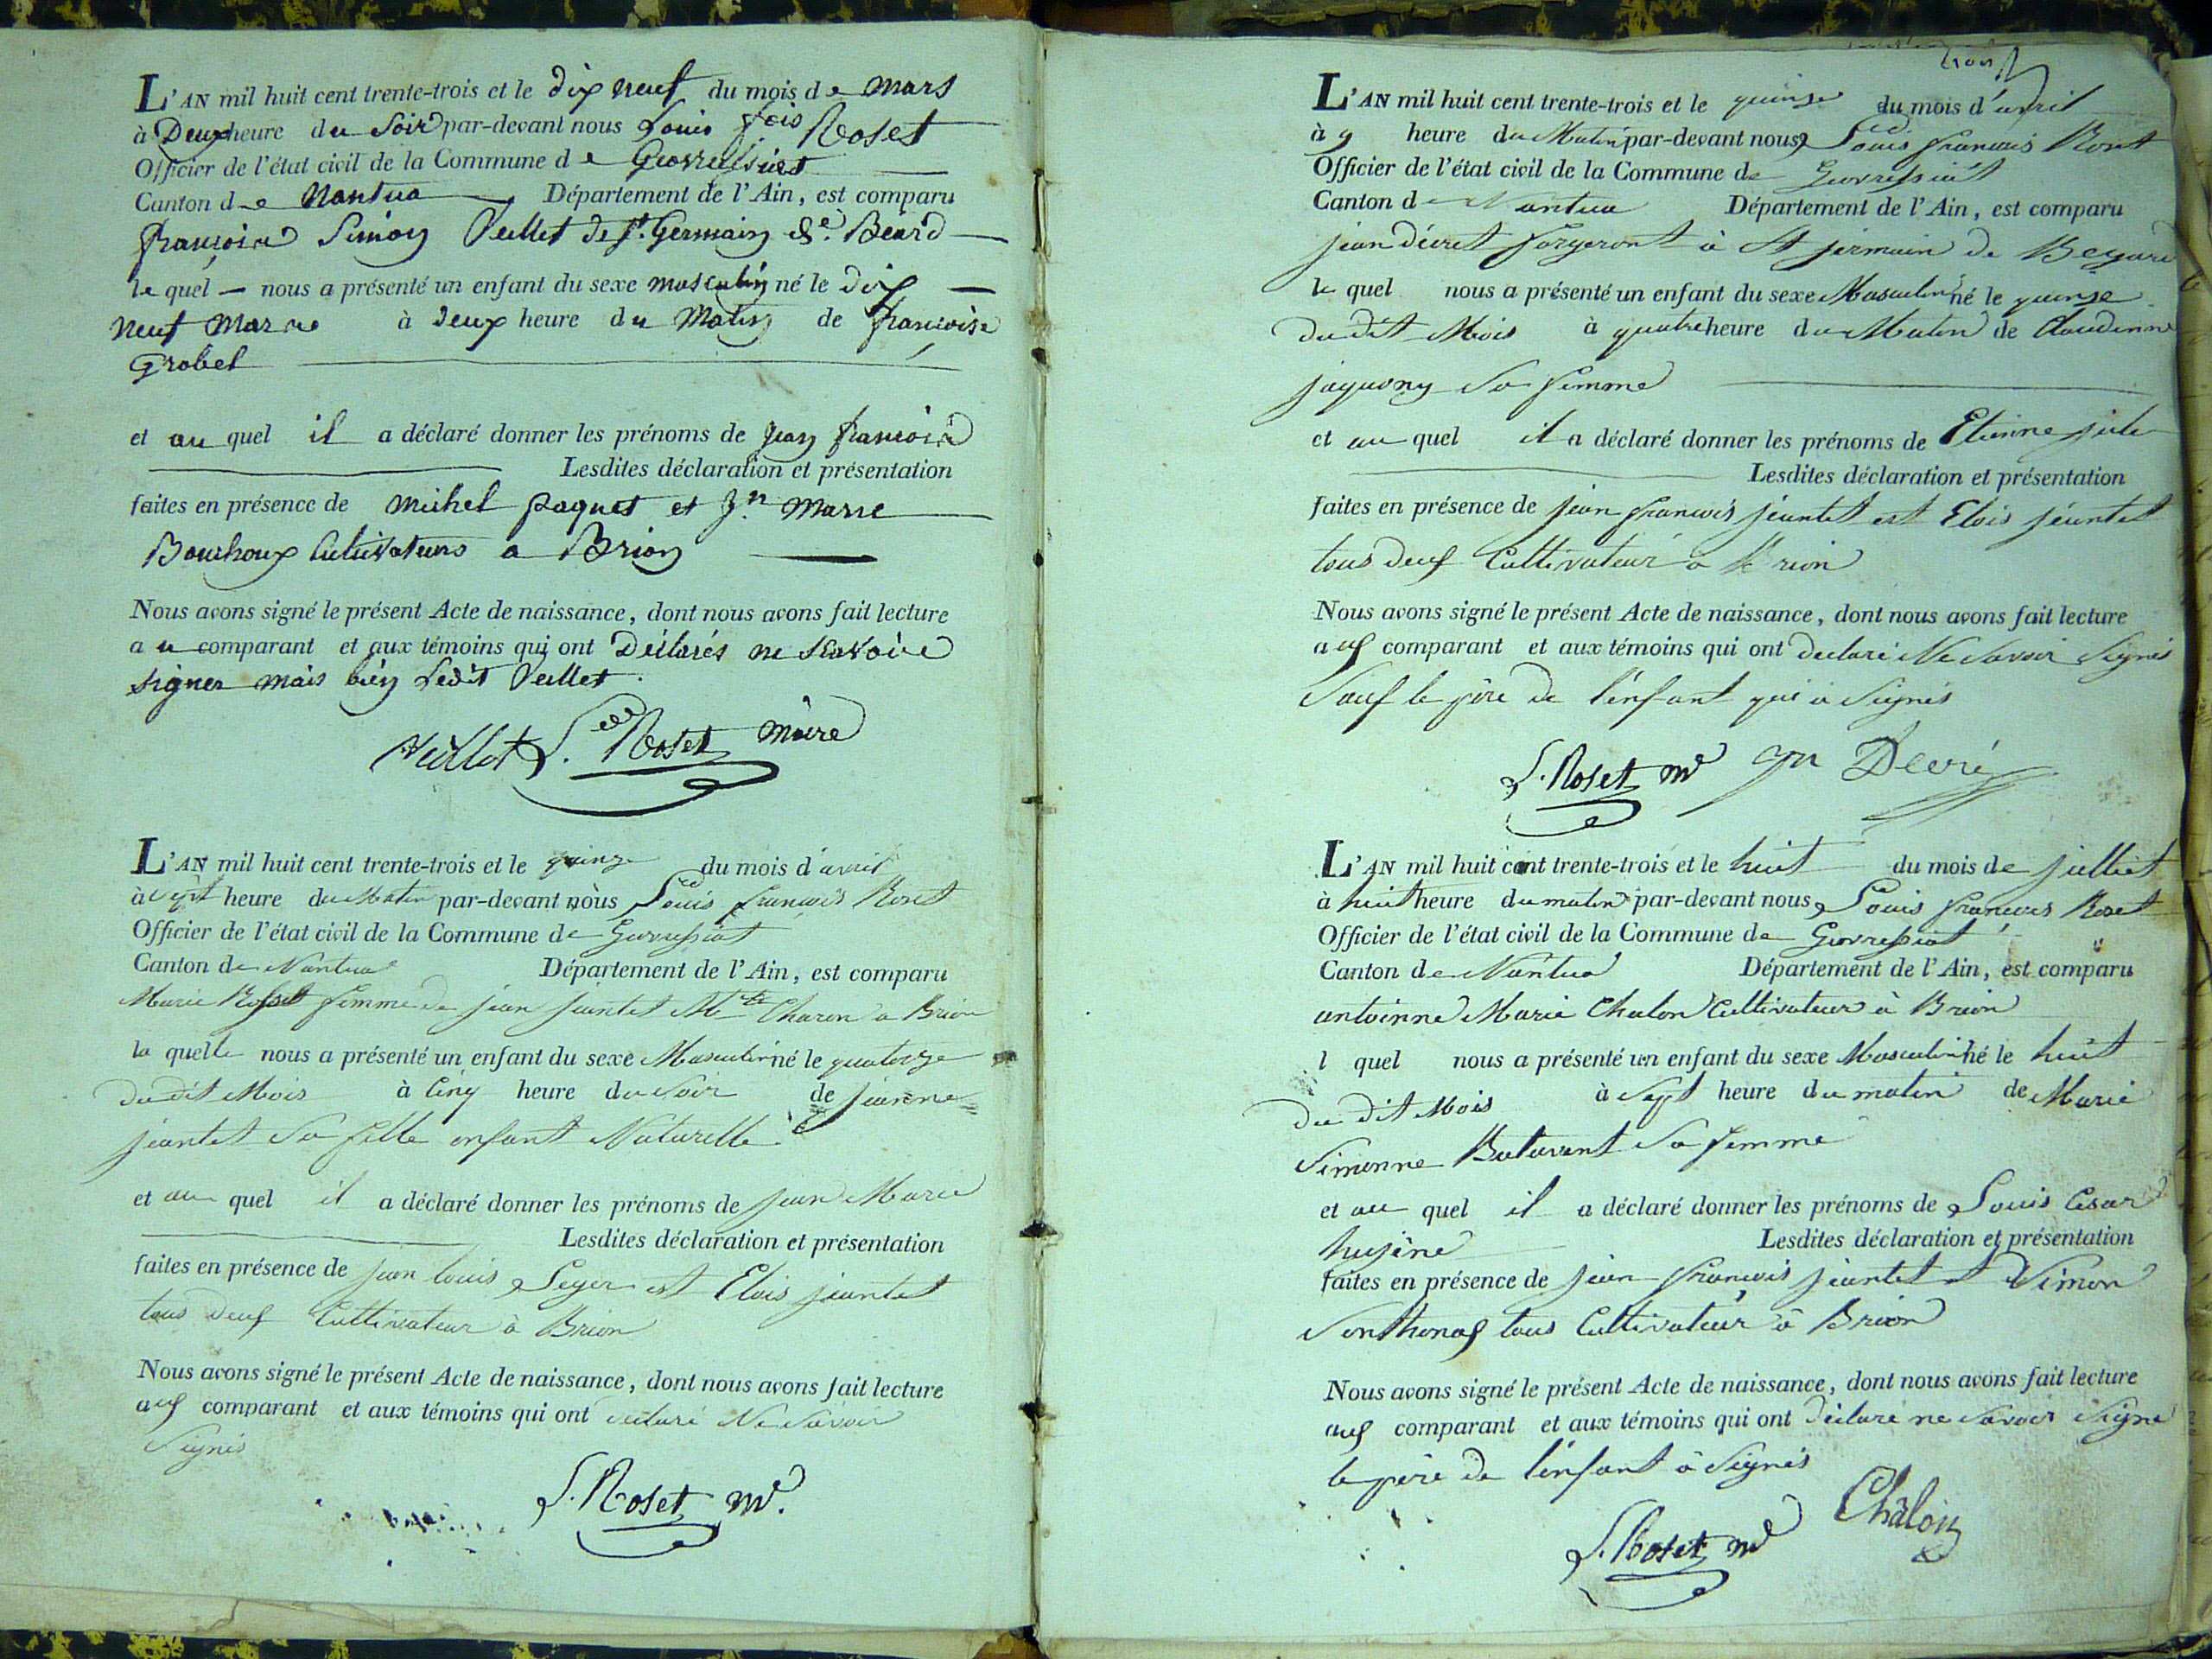 L'AN mil huit cent trente-trois et le dix neuf du mois de mars
à Deux heure du Soir par-devant nous Louis fois Roset
Officier de l'état civil de la Commune de
Canton de Nantua Département de l'Ain, est comparu
françois Simon Veillet de St. Germain de Beard
le quel nous a présenté un enfant du sexe masculin né le dix
neuf à deux heure du Matin de francoise
Grobet
et au quel il a déclaré donner les prénoms de Jean françois
Lesdites déclaration et présentation
faites en présence de michel paquet et Jn marie
Bouchoux Cultivateurs a Brion
Nous avons signé le présent Acte de naissance, dont nous avons fait lecture
au comparant et aux témoins qui ont Déclarés ne scavoir
signer mais bien Ledit Veillet.
Veillet L. Roset maire
L'AN mil huit cent trente-trois et le quinze du mois d'avril
à sept heure du Matin par-devant nous Louis francois Roset
Officier de l'état civil de la Commune de Geovressiat
Canton de Nantua Département de l'Ain, est comparu
Marie Rosset femme de jean jeantet Charon a Brion
la quelle nous a présenté un enfant du sexe Masculin né le quatorze
du dit Mois à Cinq heure du Soir de jeanne
jeantet Sa fille enfant Naturelle
et au quel il a déclaré donner les prénoms de jean Marie
Lesdites déclaration et présentation
faites en présence de jean louis Leger et Elois jeantet
tous deux Cultivateur à Brion
Nous avons signé le présent Acte de naissance, dont nous avons fait lecture
aux comparant et aux témoins qui ont declaré Ne Savoir
Signés
L. Roset m.
L'AN mil huit cent trente-trois et le quinse du mois d'avril
à 9 heure du Matin par-devant nous Louis francois Roset
Officier de l'état civil de la Commune de Geovressiat
Canton de Nantua Département de l'Ain, est comparu
jean décret forgeront à St jermain de Beyard
le quel nous a présenté un enfant du sexe Masculin né le quinse
du dit Mois à quatre heure du Matin de Claudinne
Sa femme
et au quel il a déclaré donner les prénoms de Etienne jule
Lesdites déclaration et présentation
faites en présence de jean francois jeantet est Elois jeantet
tous deux Cultivateur à Brion
Nous avons signé le présent Acte de naissance, dont nous avons fait lecture
aux comparant et aux témoins qui ont declaré Ne Savoir Signés
Sauf le père de l'enfant qui à Signés
L. Roset m
L'AN mil huit cent trente-trois et le huit du mois de julliet
à huit heure du matin par-devant nous Louis francois Roset
Officier de l'état civil de la Commune de Geovressiat
Canton de Nantua Département de l'Ain, est comparu
antoinne Marie Chalon Cultivateur à Brion
l quel nous a présenté un enfant du sexe Masculin né le huit
du dit Mois à Sept heure du matin de Marie
Simonne Sa femme
et au quel il a déclaré donner les prénoms de Louis Cesar
hujène Lesdites déclaration et présentation
faites en présence de jean francois jeantet et Simon
Sonthonax tous Cultivateur à Brion
Nous avons signé le présent Acte de naissance, dont nous avons fait lecture
aux comparant et aux témoins qui ont déclare ne Savoir Signe
le père de l'enfant à Signés
L. Roset m Châlon